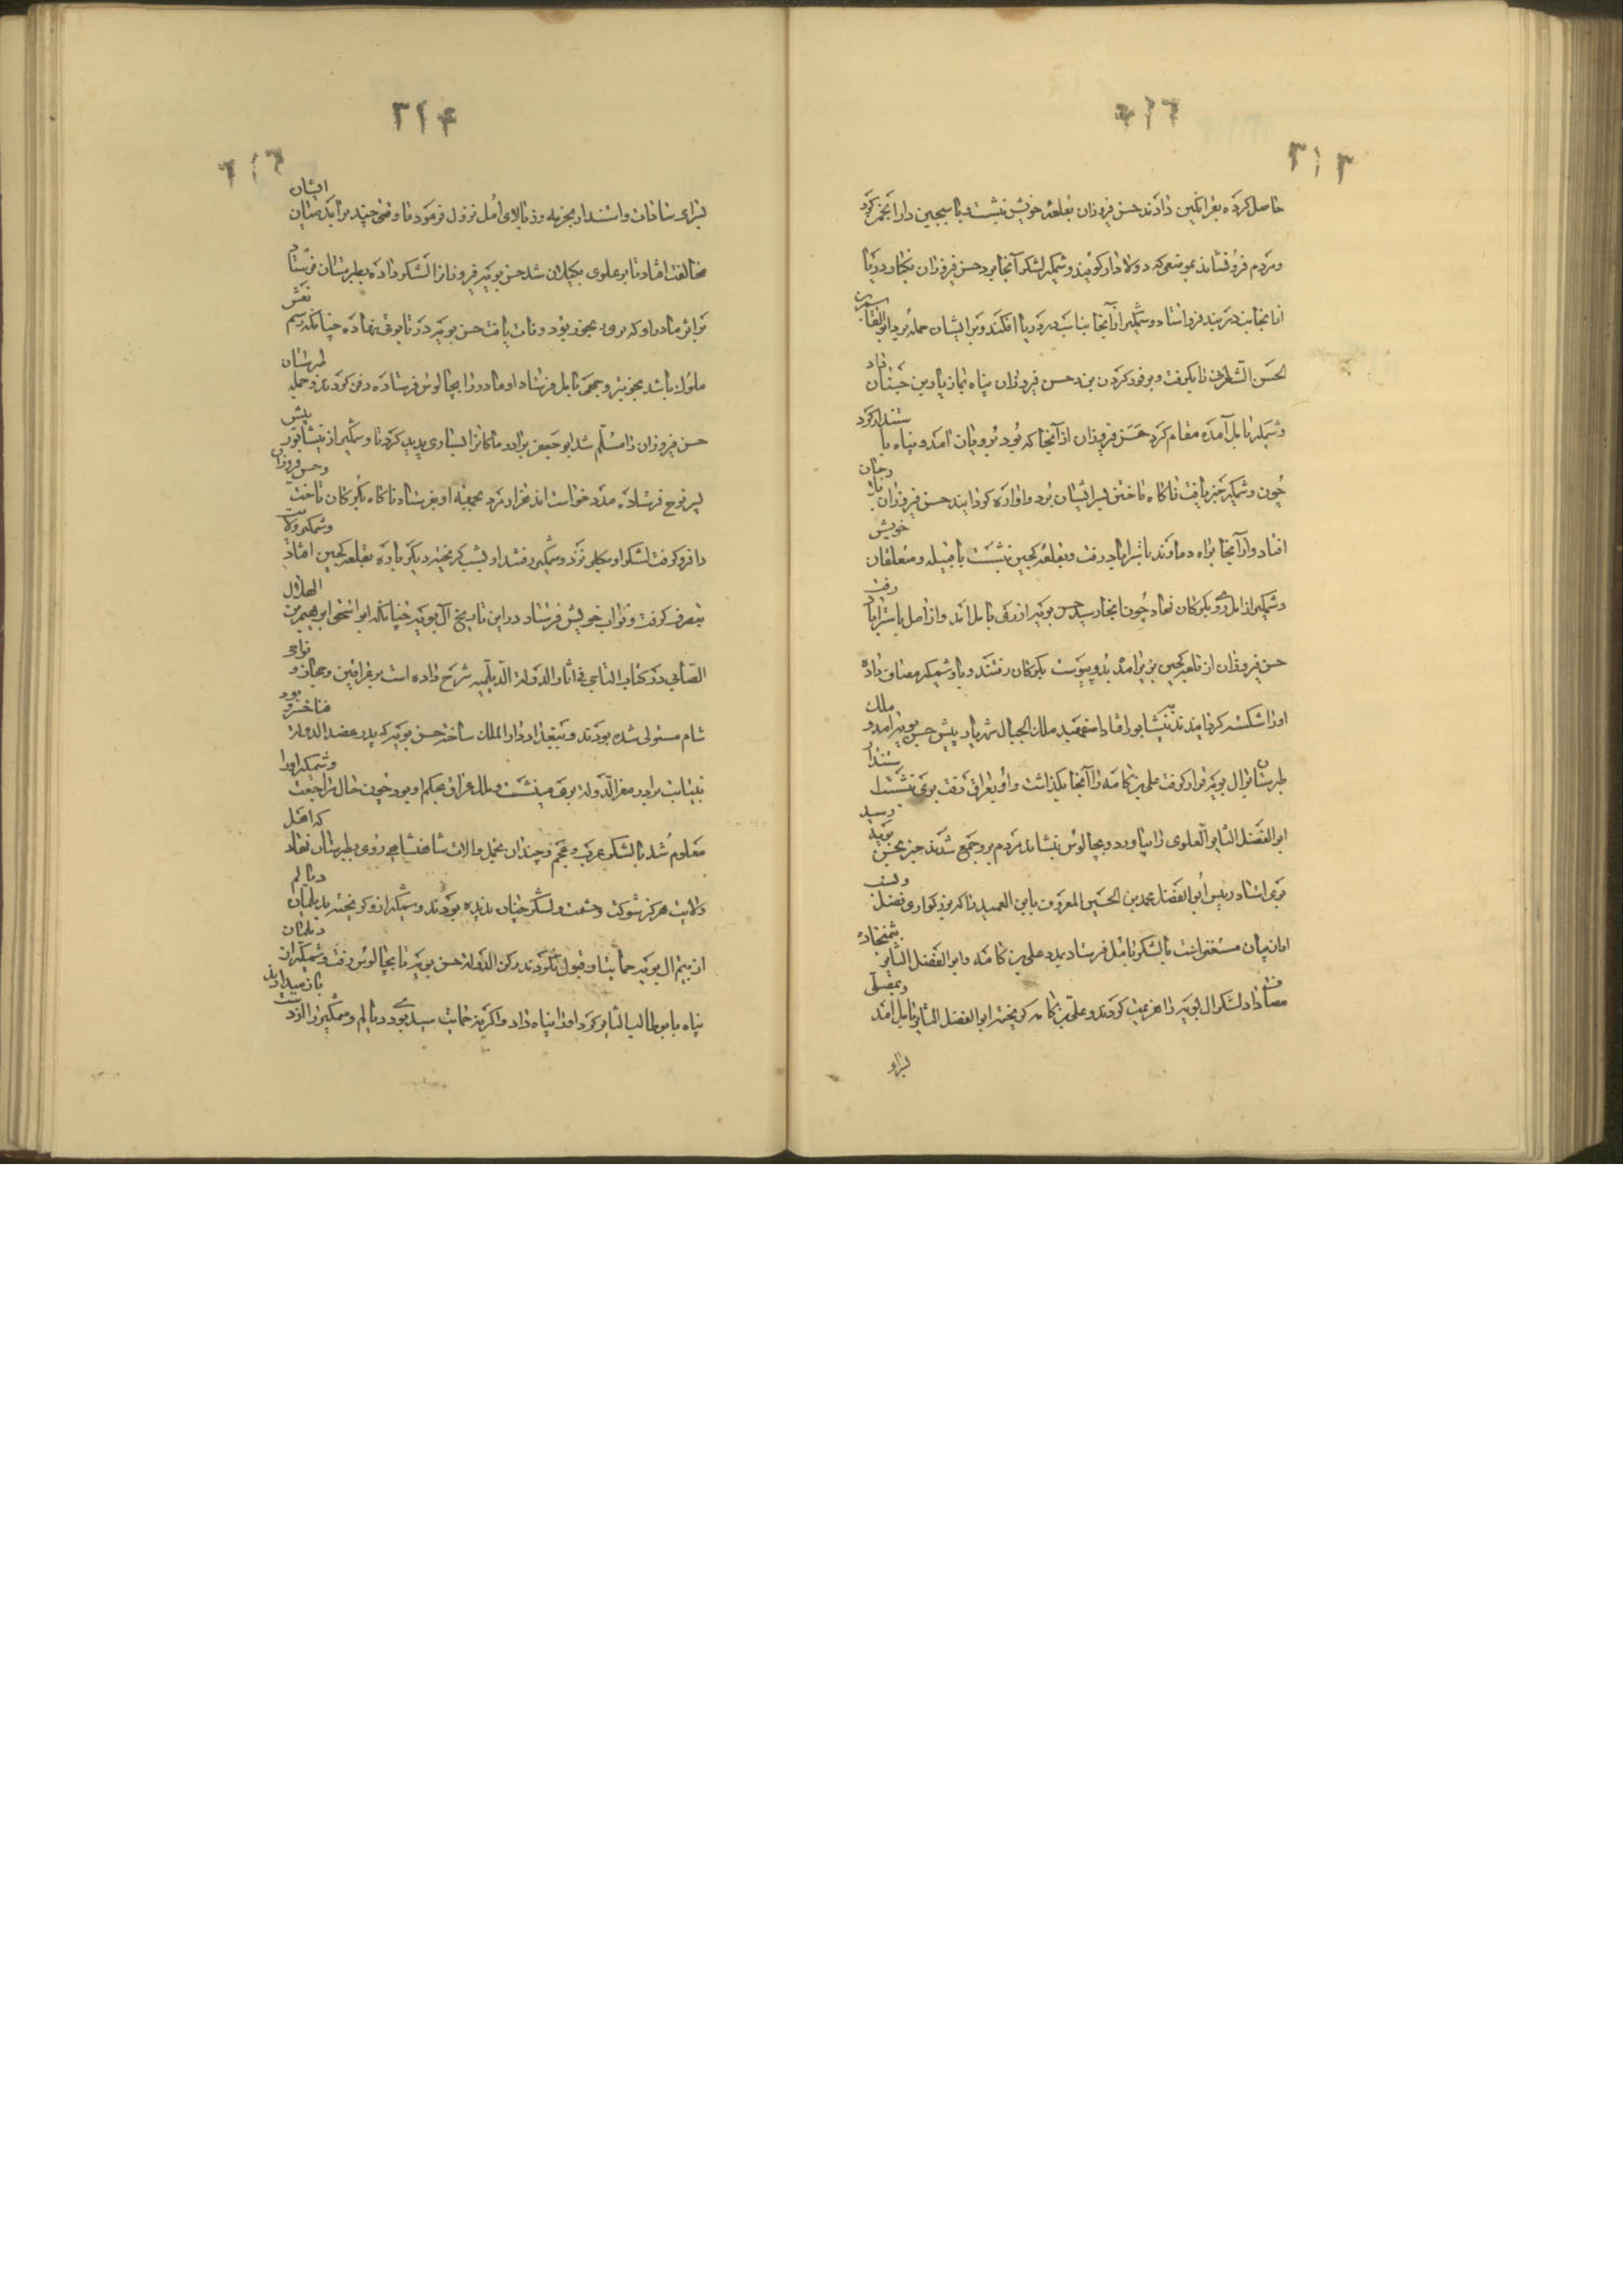 ۳۱۳
حاصل کرده بفراتکین دادند حسن فیروزان بقلعه خویش نشست با سبجین دارانجمن کرد
و مردم فرو نشاند بموضعی که دولادار کویند و شمکیر لشکر آنجا برد حسن فیروزان بکنار دریا
آنجا بند فرو استاد و شمکیر از آنجا بناسیه در دریا افکند و بر ایشان حمله برد ابوالقاسم بن
الحسن الشعرانی را بکرفت و بر فور کردن بزد حسن فیروزان پناه باز بادین حینان داد
و شمکیر بامل آمده مقام کرد حسن فیروزان از آنجا که بود برویان آمد و پناه با ستندار کرد
چون وشمکیر خبر یافت ناکاه تاختن بسر ایشان برد و آواره کردانید حسن فیروزان باز رجان
افتاد و از آنجا براه دماوند باستراباد رفت و بقلعه کجین نشست با قبیله و متعلقان خویش
وشمکیر از امل روی بکرکان نهاد چون آنجا رسید حسن بویه از ری بامل آمد و از آمل باستراباد رفت
حسن فیروزان از قلعه کجین بزیر آمد بدو پیوست بکرکان رفتند و با وشمکیر مصاف داده
او را شکسته کردانیدند بنیشابور افتاد اصفهبد ملک الجبال شهریار پیش حسن بویه آمد و ملک
طبرستان بر آل بویه قرار کرفت علی بن کامه را آنجا بکذاشت و او بعراق رفت بری نشست استندار
ابوالفضل الثایر العلوی را بیاورد و بچالوس بنشاند مردم برو جمع شدند خبر بحسن بویه رسید
بری استاد رییس ابوالفضل محمد بن الحسین المعروف بابن العمید را که بزرکواری و فضل وصف
او از بیان مستغنی است با لشکر بامل فرستاد بمدد علی بن کامه و ابوالفضل الثایر بتمنجاده
مصاف داد لشکر آل بویه را هزیمت کردند و علی بن کامه کریخته ابوالفضل الثایر بامل آمد و بمصلی
لبراو
۳۱۴
لبرای سادات و استندار بخرمه رز بالای امل نزول فرمود تا وقتی چند برآمد میان ایشان
مخالفت افتاد ثایر علوی بکیلان شد حسن بویه فیروزان را لشکر داده بطبرستان فرستاد
برادر مادر او که بری بحوز بود وفات یافت حسن بویه در تابوتی نهاده چنانکه رسم نعش
ملوک باشد بجوز بر و جمعی بامل فرستاد او مادر را بچالوس فرستاده دفن کردند و جمله طبرستان
حسن فیروزان را مسلم شد ابو جعفر برادر ماکان را بساری پدید کرد تا وشمکیر از نیشابور پیش
پسر نوح فرستاده مدد خواست اند هزار مرد بجمعیه او بفرستاد ناکاه بکرکان تاخت و حسن فیروزان
را فرو کرفت لشکر او بکلی نزد وشمکیر رفتند او بشب کریخته دیکر باره بقلعه کجین افتاد وشمکیر ولایت
بتصرف کرفت و نواب خویش فرستاد در این تاریخ آل بویه چنانکه ابو اسحق ابرهیم بن الهلال
الصابی در کتاب التاجی فی اثار الدولة الدیلمیه شرح داده است بر عراقین و حجاز و نواحی
شام مستولی شده بودند و ببغداد دار الملک ساخته حسن بویه که پدر عضد الدوله فناخسرو بود
بنیابت برادر معز الدوله بری مینشست و ملک عراق بحکم او بود چون حال مراجعت وشمکیر او را
معلوم شد با لشکر عرب و عجم و چندان تجمل و آلات شاهنشاهی روی بطبرستان نهاد که اهل
ولایت هرکز شوکت و حشمت و لشکر چنان ندیده بودند وشمکیر ازو کریخته بدیلمان دیالم
از بیم آل بویه حمایت او قبول نکردند رکن الدوله حسن بویه تا بچالوس رفت وشمکیر از دیلمان
پناه بابوطالب الثایر کرد او را پناه داد و اکر نه حمایت سیدی بود دیالم وشمکیر را از دست باز میدادند